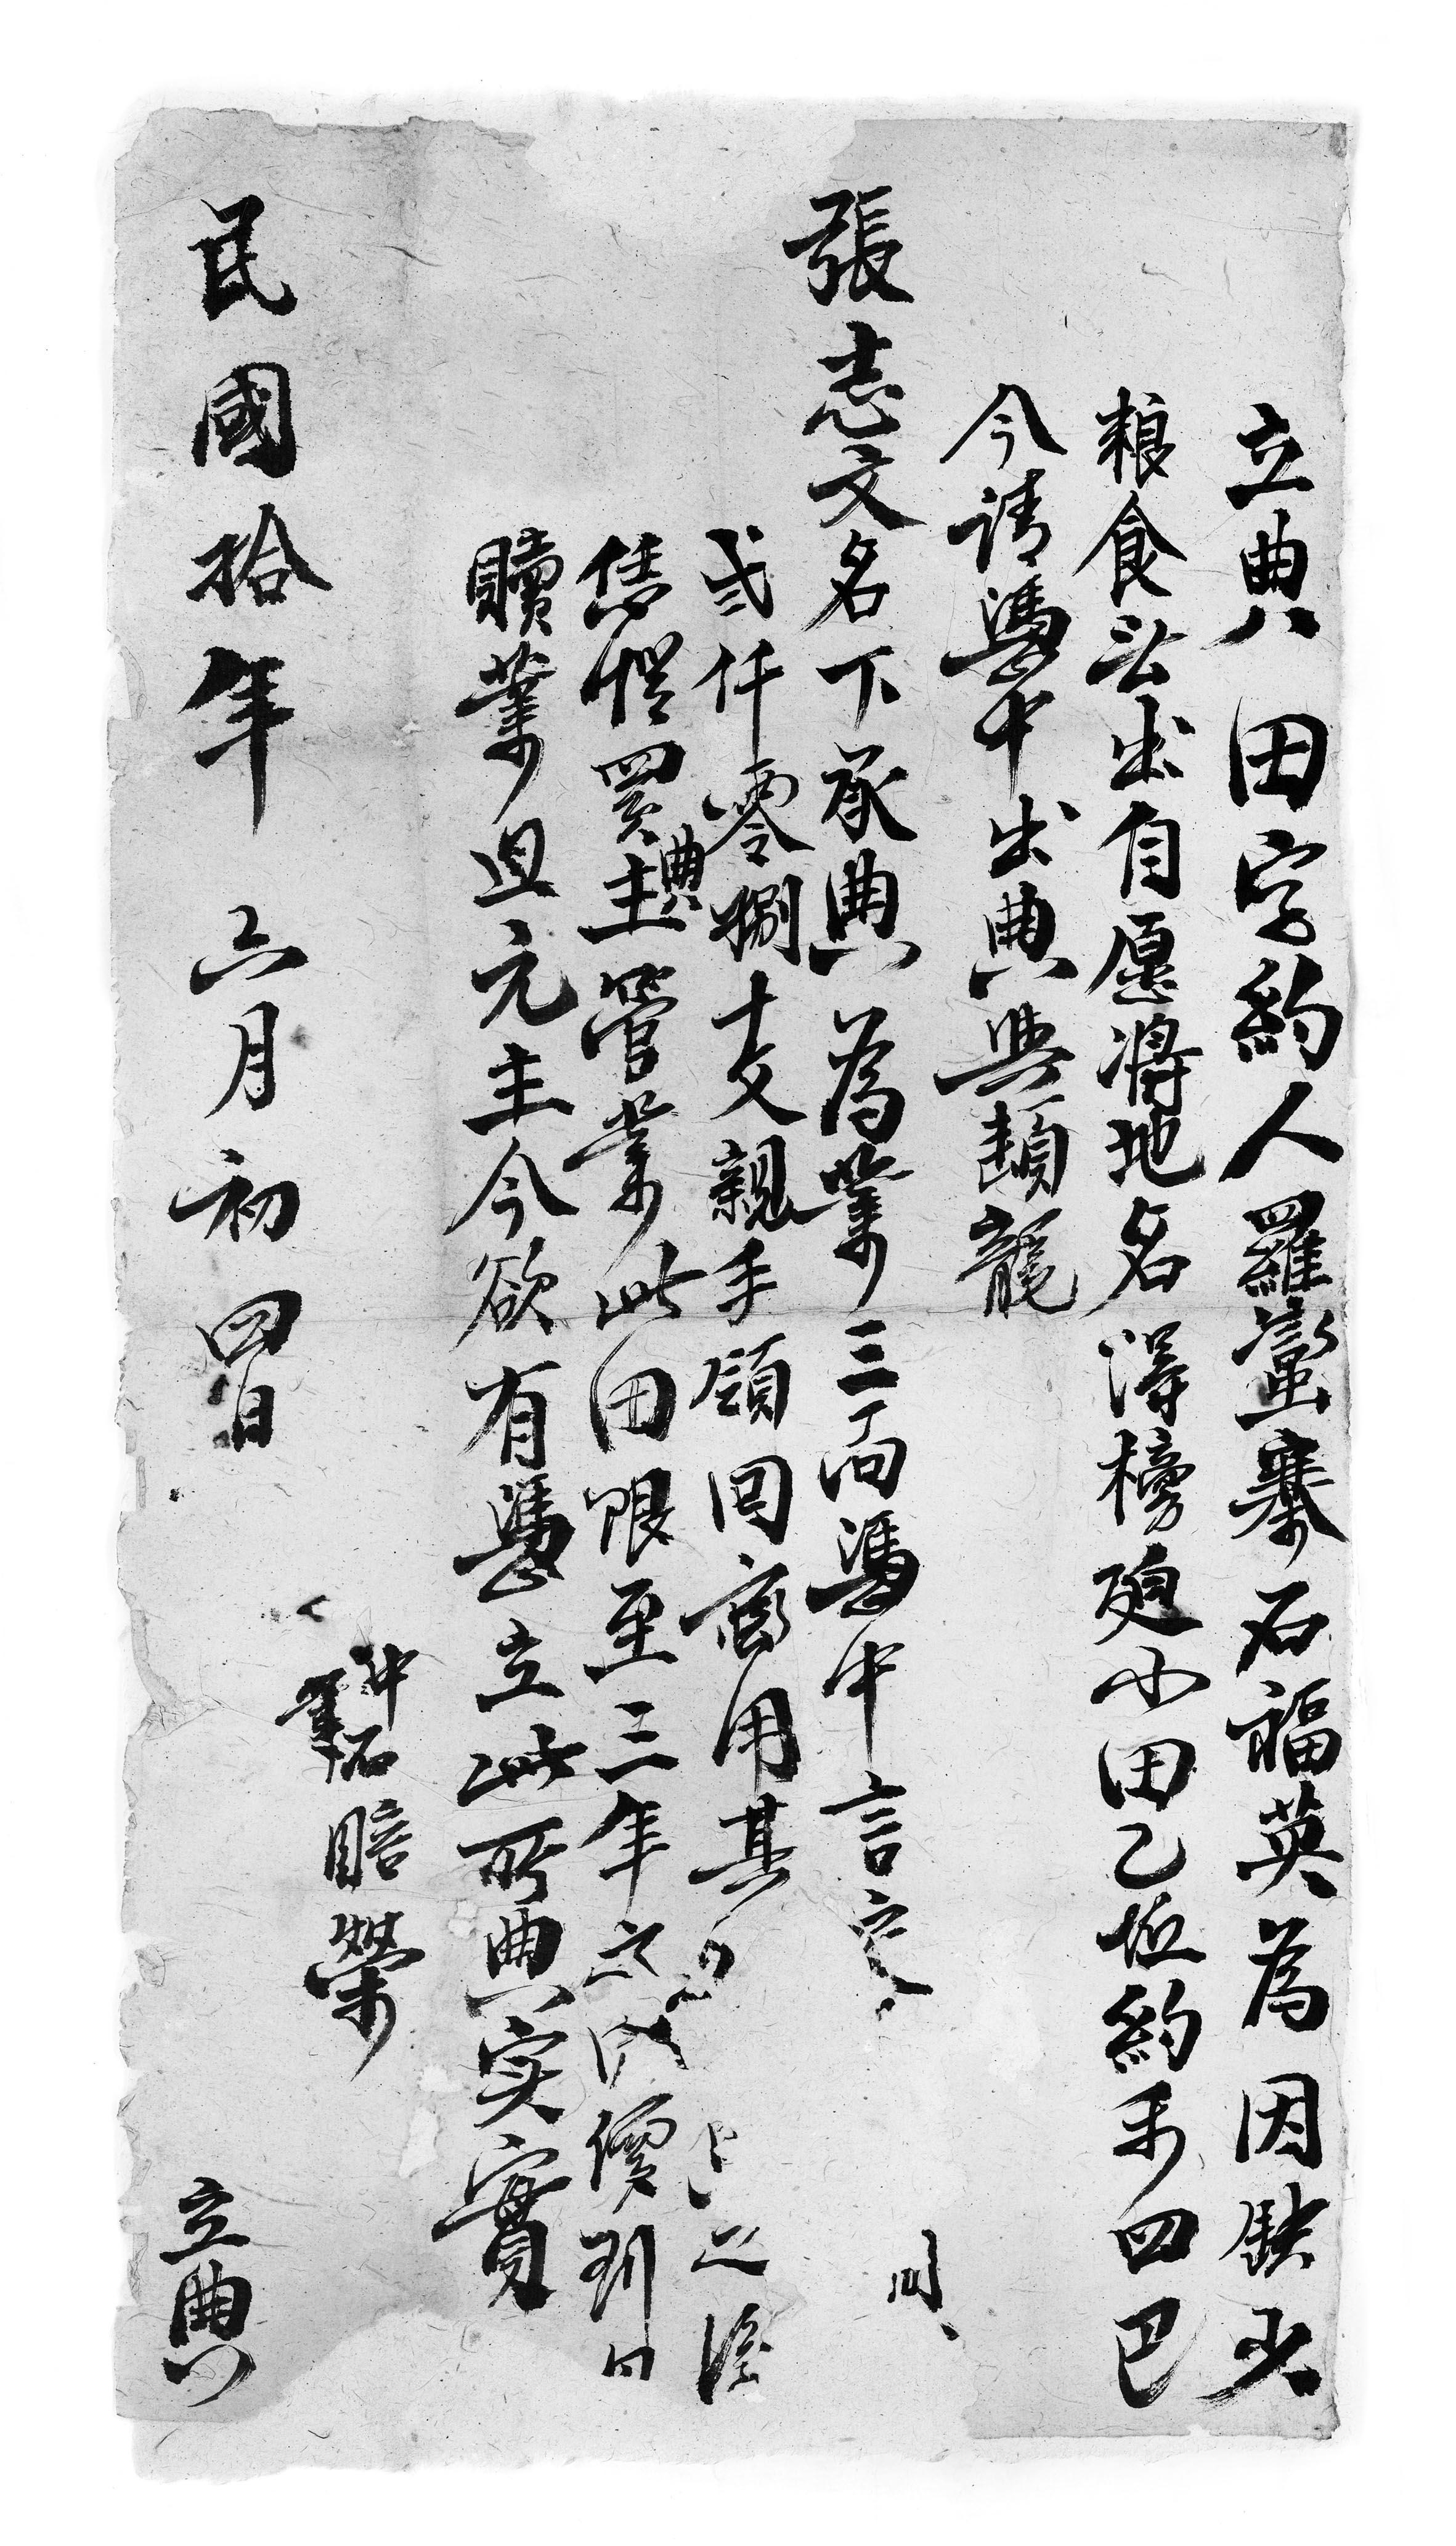 立典田字約人羅蠻寨石福英為因缺少
粮食無出自愿將地名得榜迴小田乙坵約禾四把
今請憑中出典與頭龍
張志文名下承典為業三面憑中言定
弍仟零捌十文親手領回應用其之後
恁憑買典主管業此田限至三年之內價到
贖業迴元主今欲有憑立此所典实實
中筆石賠榮
民國拾年六月初四日
立典